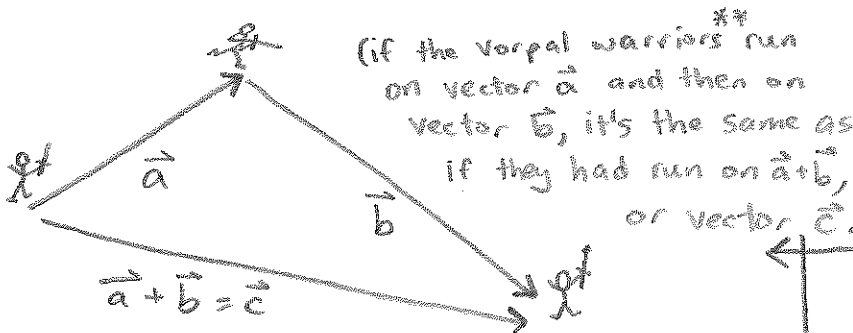 (if the vorpal warriors** run
on vector a⃗ and then on
vector b⃗, it's the same as
if they had run on a⃗+b⃗,
or vector c⃗.
a⃗
b⃗
a⃗ + b⃗ = c⃗